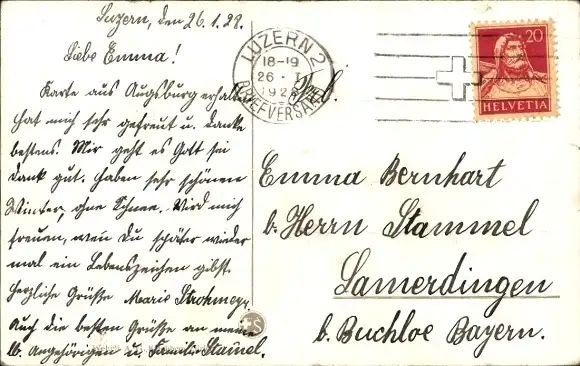 Luzern, den 26.1.28.
Liebe Emma!
Karte aus Augsburg erhalten
hat mich sehr gefreut u. danke
bestens. Mir geht es Gott sei
dank gut. Haben sehr schönen
Winter, ohne Schnee. Wird mich
freuen, wen Du später wieder
mal ein Lebenszeichen gibst.
Herzliche Grüße Marie Strohmeyr.
Auch die besten Grüße an meine
lb. Angehörigen u. Familie Stammel.
LUZERN 2
18-19
26. I.
1928
BRIEFVERSAND
20
HELVETIA
Emma Bernhart
b. Herrn Stammel
Lamerdingen
b. Buchloe Bayern.